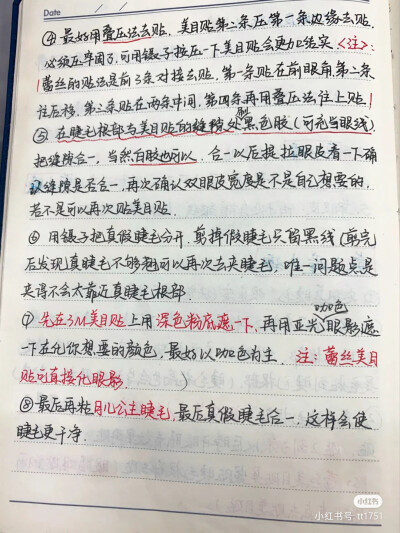 Date
④ 最好用叠压法去贴，美目贴第二条压第一条边缘去贴，
必须压牢固了，可用镊子按压一下美目贴会更加结实<注>：
蕾丝的贴法是前3条对接去贴，第一条贴在前眼角，第二条
往后移，第三条贴在两条中间，第四条再用叠压法往上贴！
⑤ 在睫毛根部与美目贴的缝隙处刷黑色胶（可充当眼线）
把缝隙合一，当然白胶也可以．合一以后提拉眼皮看一下确
认缝隙是否合一，再次确认双眼皮宽度是不是自己想要的，
若不是可以再次贴美目贴．
⑥ 用镊子把真假睫毛分开，剪掉假睫毛只留黑线（剪完
后发现真睫毛不够翘可以再次去夹睫毛，唯一问题点是
夹得不会太靠近真睫毛根部．
⑦ 先在3M美目贴上用深色粉底遮一下，再用亚光咖色眼影遮
一下在化你想要的颜色，最好以咖色为主．注：蕾丝美目
贴可直接化眼影．
⑧ 最后再粘月儿公主睫毛，最后真假睫毛合一．这样会使
睫毛更干净．
小红书
小红书号: tt1751